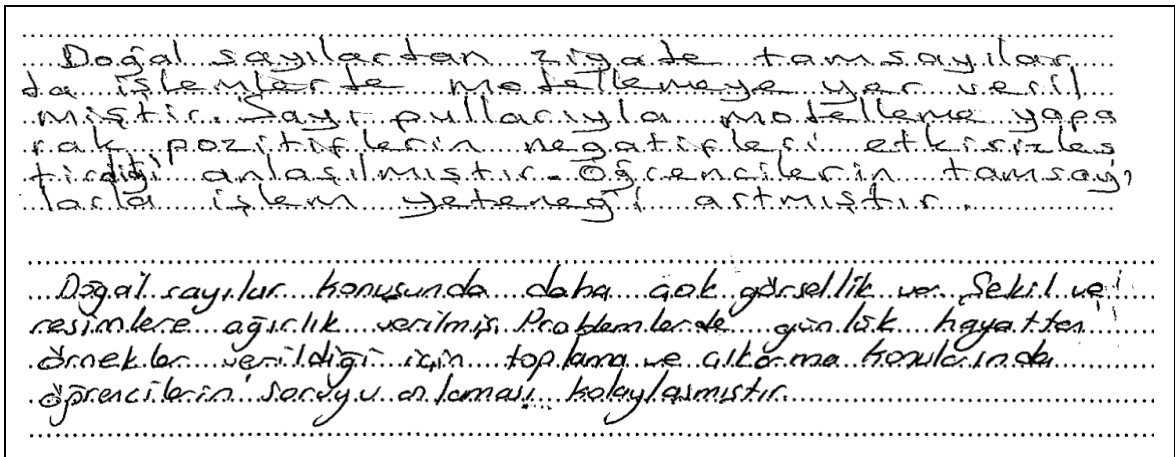 Doğal sayılardan ziyade tamsayılar
da işlemlerde modellemeye yer veril
miştir. Sayı pullarıyla modelleme yapa
rak pozitiflerin negatifleri etkisizleş
tirdiği anlaşılmıştır. Öğrencilerin tamsayı
larla işlem yeteneği artmıştır.
Doğal sayılar konusunda daha çok görsellik var. Şekil ve
resimlere ağırlık verilmiş. Problemlerde günlük hayattan
örnekler verildiği için toplama ve çıkarma konularında
öğrencilerin soruyu anlaması kolaylaşmıştır.